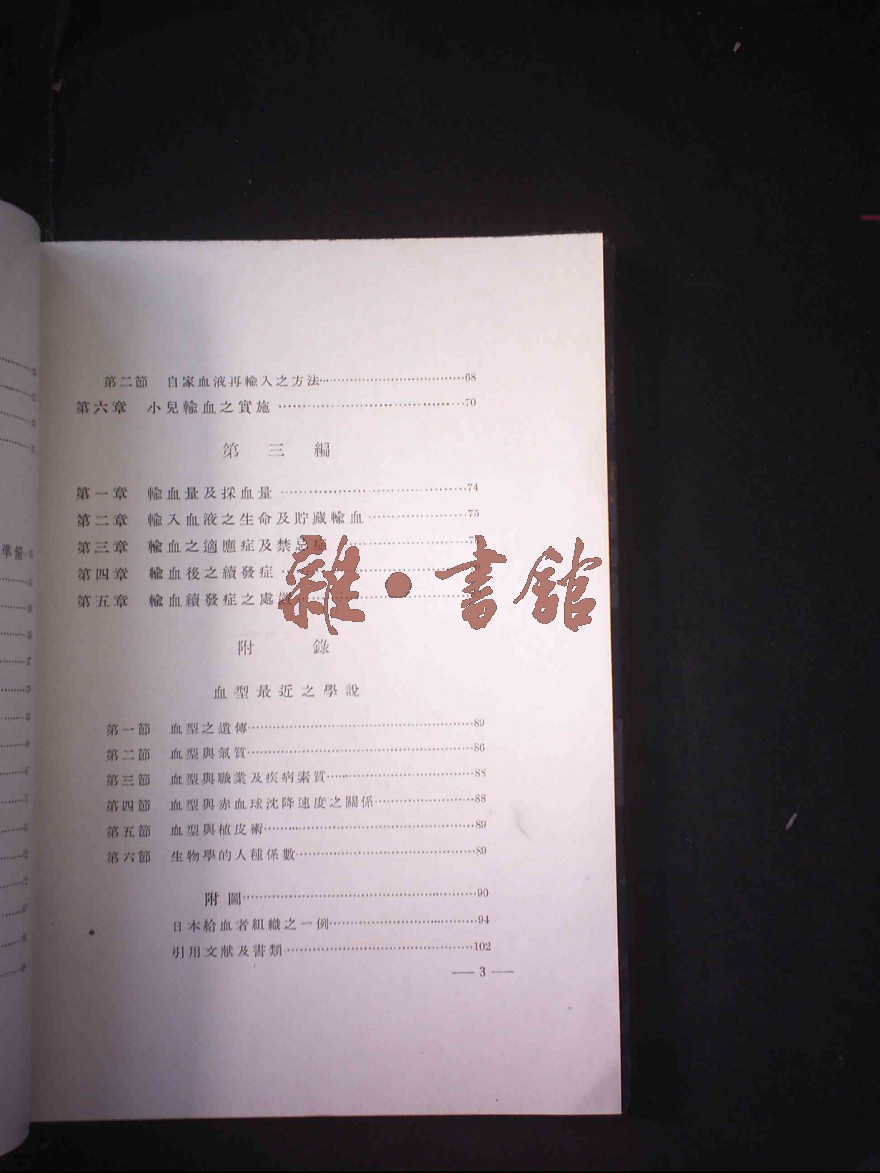 第二節　自家血液再輸入之方法…………………………68
第六章　小兒輸血之實施…………………………70
第三編
第一章　輸血量及採血量…………………………74
第二章　輸入血液之生命及貯藏輸血…………………75
第三章　輸血之適應症及禁忌症…………………
第四章　輸血後之續發症…………………………
第五章　輸血續發症之處置…………………………
附錄
血型最近之學說
第一節　血型之遺傳…………………………89
第二節　血型與氣質…………………………86
第三節　血型與職業及疾病素質…………………88
第四節　血型與赤血球沈降速度之關係……………88
第五節　血型與植皮術…………………………89
第六節　生物學的人種係數…………………………89
附圖…………………………90
日本給血者組織之一例…………………94
引用文献及書類…………………………102
— 3 —
雜·書館
準備